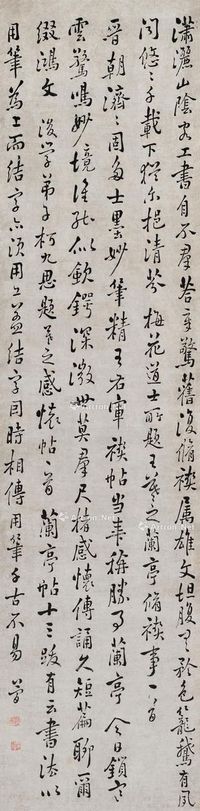 瀟灑山陰客工書自不羣若言驚舊復脩禊屬雄文坦腹了矜色籠鵝有風
聞悠々千載下猶尔挹清芬 梅花道士所題王羲之蘭亭脩禊事一首
晉朝濟々固多士墨妙筆精王右軍禊帖當年稱勝事蘭亭今日鎖寒
雲驚鳴妙境誰能似 鍔深淵世莫羣尺牘感懷傳誦久短篇聊爾
綴鴻文 後學弟子柯九思題羲之感懷帖一首 蘭亭帖十三跋有云書法以
用筆為上而結字亦須用工蓋結字因時相傳用筆千古不易